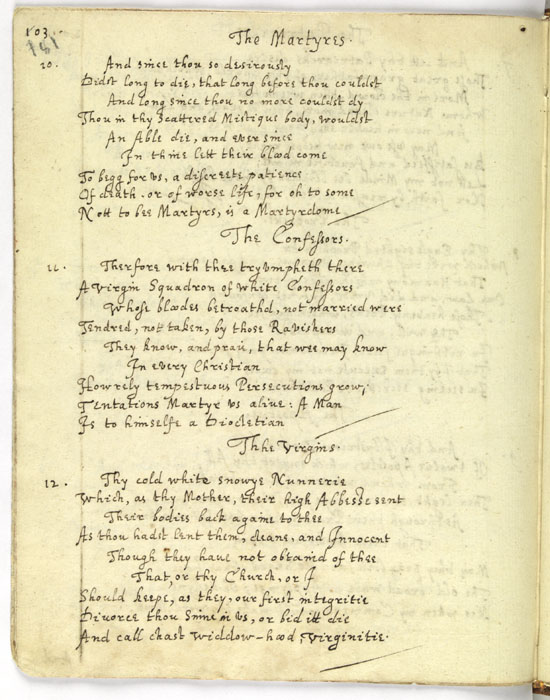 103.
181
The Martyres.
10. And since thou so desirously
Didst long to die, that long before thou couldst
And long since thou no more couldst dy
Thou in thy Scattered Mistique body, wouldst
An Able die, and ever since
In thine lett their blood come
To begg for us, a discreete patience
Of death. or of worse life, for oh to some
Nott to bee Martyrs, is a Martyrdome
The Confessors.
11. Therfore with thee tryumpheth there
A Virgin Squadron of white Confessors
Whose bloodes betroathd, not married were
Tendred, not taken, by those Ravishers
They know, and pray, that wee may know
In every Christian
Howrely tempestuous Persecutions grow,
Tentations Martyr us alive: A Man
Is to himselfe a Diocletian
Thhe Virgins.
12. Thy cold white snowye Nunnerie
Which, as thy Mother, their high Abbesse sent
Their bodies back againe to thee
As thou hadst lent them, cleane, and Innocent
Though they have not obtaind of thee
That, or thy Church, or I
Should keepe, as they, our first integritie
Divorce thou Sinne in us, or bid itt die
And call chast Widdow-hood, Virginitie.